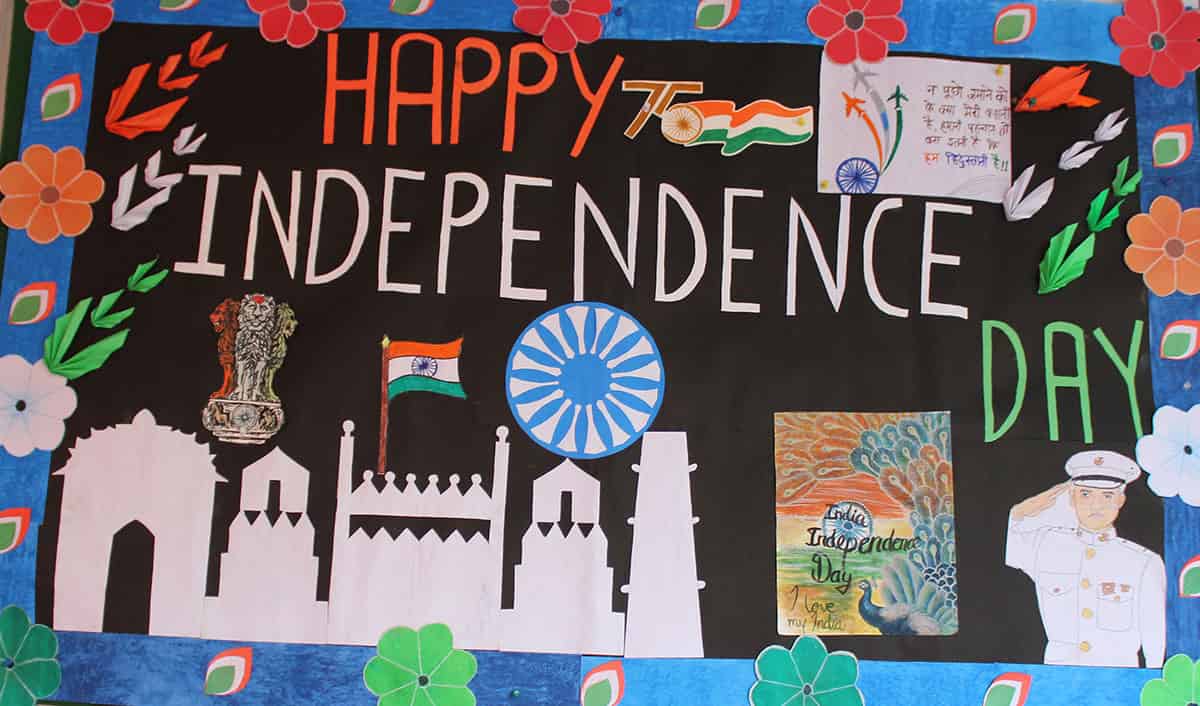 HAPPY
75
न पूछो ज़माने को
के क्या मेरी कहानी
है, हमारी पहचान तो
बस इतनी है कि
हम हिंदुस्तानी है!!
INDEPENDENCE
DAY
India
Independence
Day
I love
my India